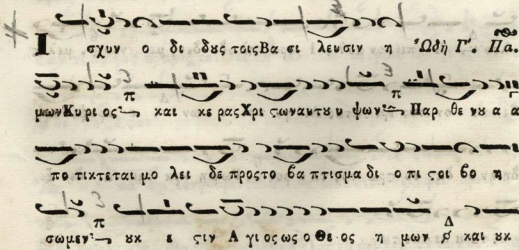 Ι σχυν ο δι δȣς τοις Βα σι λευ σιν η Ὠδὴ Γʹ. Πα.
μων Κυριος π και κε ρας Χρι ςων αυ τȣ υ ψων π Παρ θε νȣ α α
πο τικτεται μο λει δε προς το βα πτισμα δι ο πι ςοι βο η
σωμεν π ȣκ ε ςιν Α γιος ως ο Θε ος η μων Δ και ȣκ